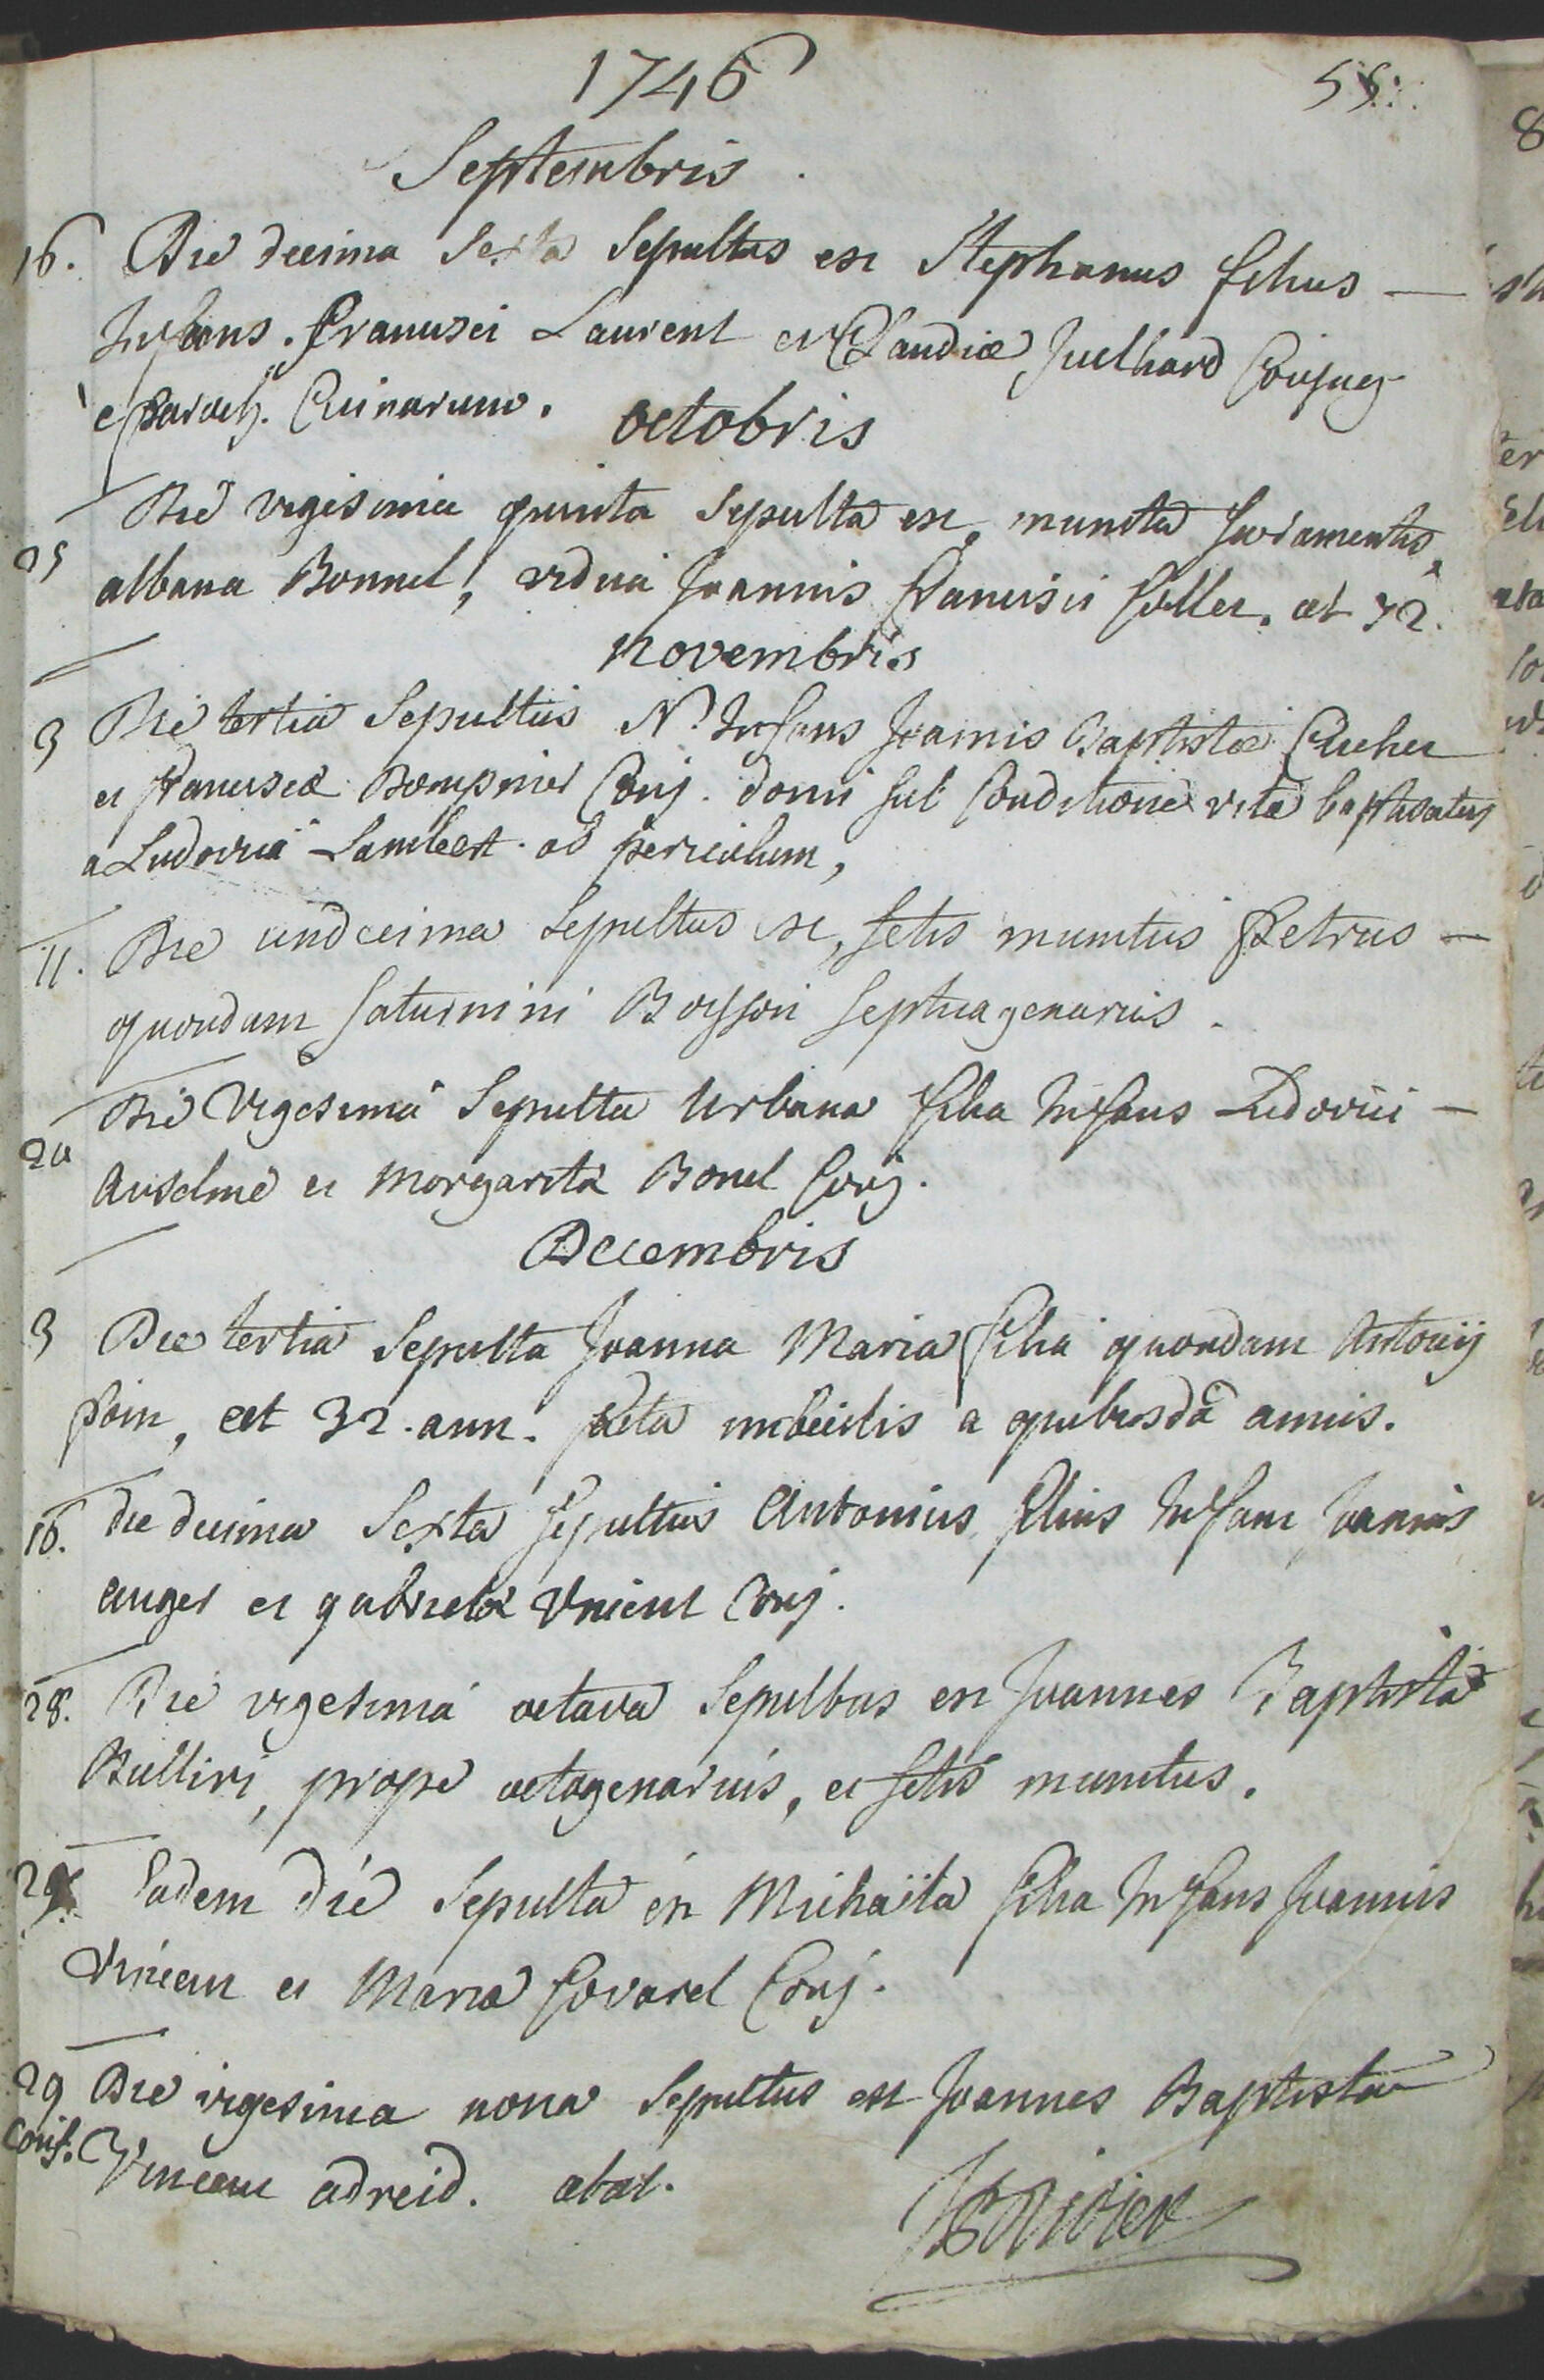 1746
55
Septembris
16. Die decima Sexta Sepultus est Stephanus filius —
Infans. francisci Laurent et Claudiæ Juilhard Conjug
e Paroch. Ruinarum.
octobris
25 Die vigesima quinta Sepulta est, munita Sacramentis,
albana Bonnel, vidua Joannis francisci sollier. æt 72.
novembris
3 Die tertia Sepultus N. Infans Joannis Baptistæ Crucher
et franciscæ Conj. domi sub Conditione vitæ baptisatus
a Ludovica Lambert ob periculum,
11. Die undecima Sepultus est, sctis munitus Petrus —
quondam Saturnini Boysson septuagenarius.
20 Die Vigesima Sepulta Urbana filia Infans Ludovici —
Anselme et Margaritæ Bonel Conj.
Decembris
3 Die tertia Sepulta Joanna Maria filia quondam Antonij
Pain, æt 32. ann. facta imbecilis a quibusdã annis.
16. die decima Sexta Sepultus Antonius filius Infans Joannis
Auger et gabrielæ Vincent Conj.
28. Die vigesima octava Sepultus est Joannes Baptista
prope octogenarius, et sctis munitus.
28 Eadem die Sepulta est Michaëla filia Infans Joannis
Vincent et Mariæ Conj.
29 Die vigesima nona Sepultus est Joannes Baptista
Conf. Vincent